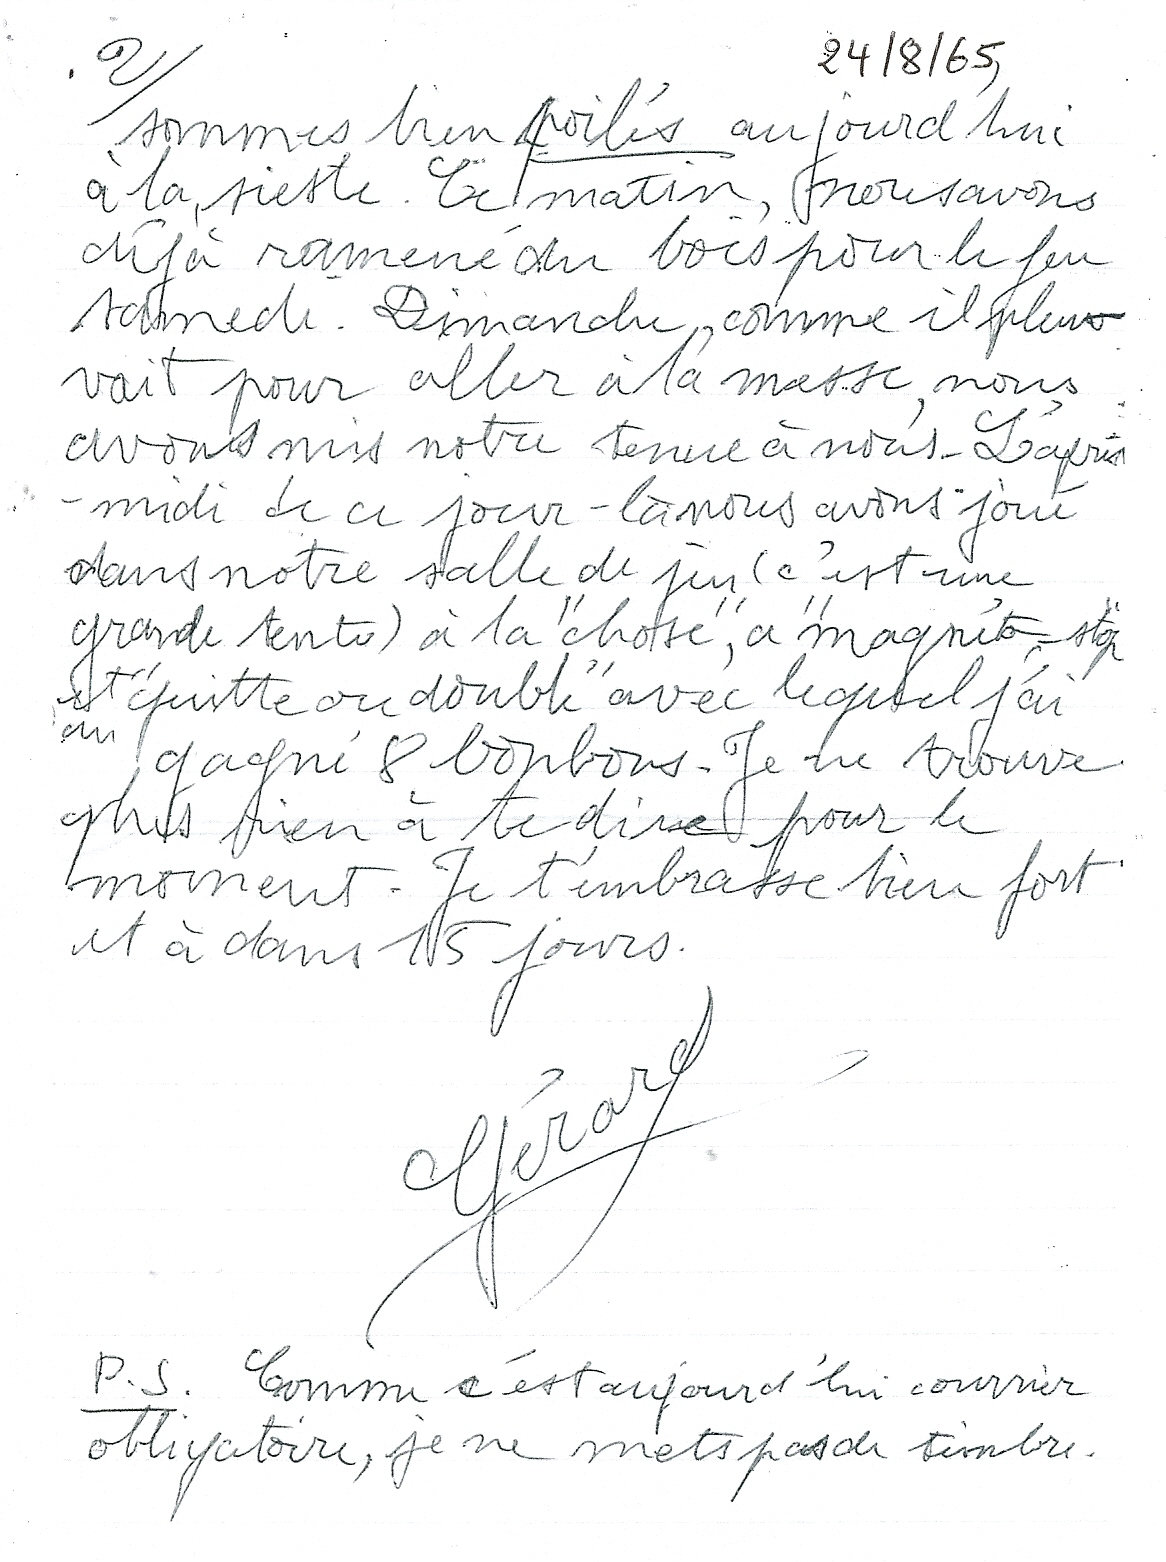 2/
24/8/65
sommes bien poilés aujourd'hui
à la sieste. Ce matin, nous avons
déjà ramené du bois pour le feu
samedi. Dimanche, comme il pleu
vait pour aller à la messe, nous
avons mis notre tenue à nous. L'après
-midi de ce jour-là nous avons joué
dans notre salle de jeu (c'est une
grande tente) à la "chose", à "magnéto-stop"
et au "quitte ou double" avec lequel j'ai
gagné 8 bonbons. Je ne trouve
plus rien à te dire pour le
moment. Je t'embrasse bien fort
et à dans 15 jours.
Gérard
P.S. Comme c'est aujourd'hui courrier
obligatoire, je ne mets pas de timbre.